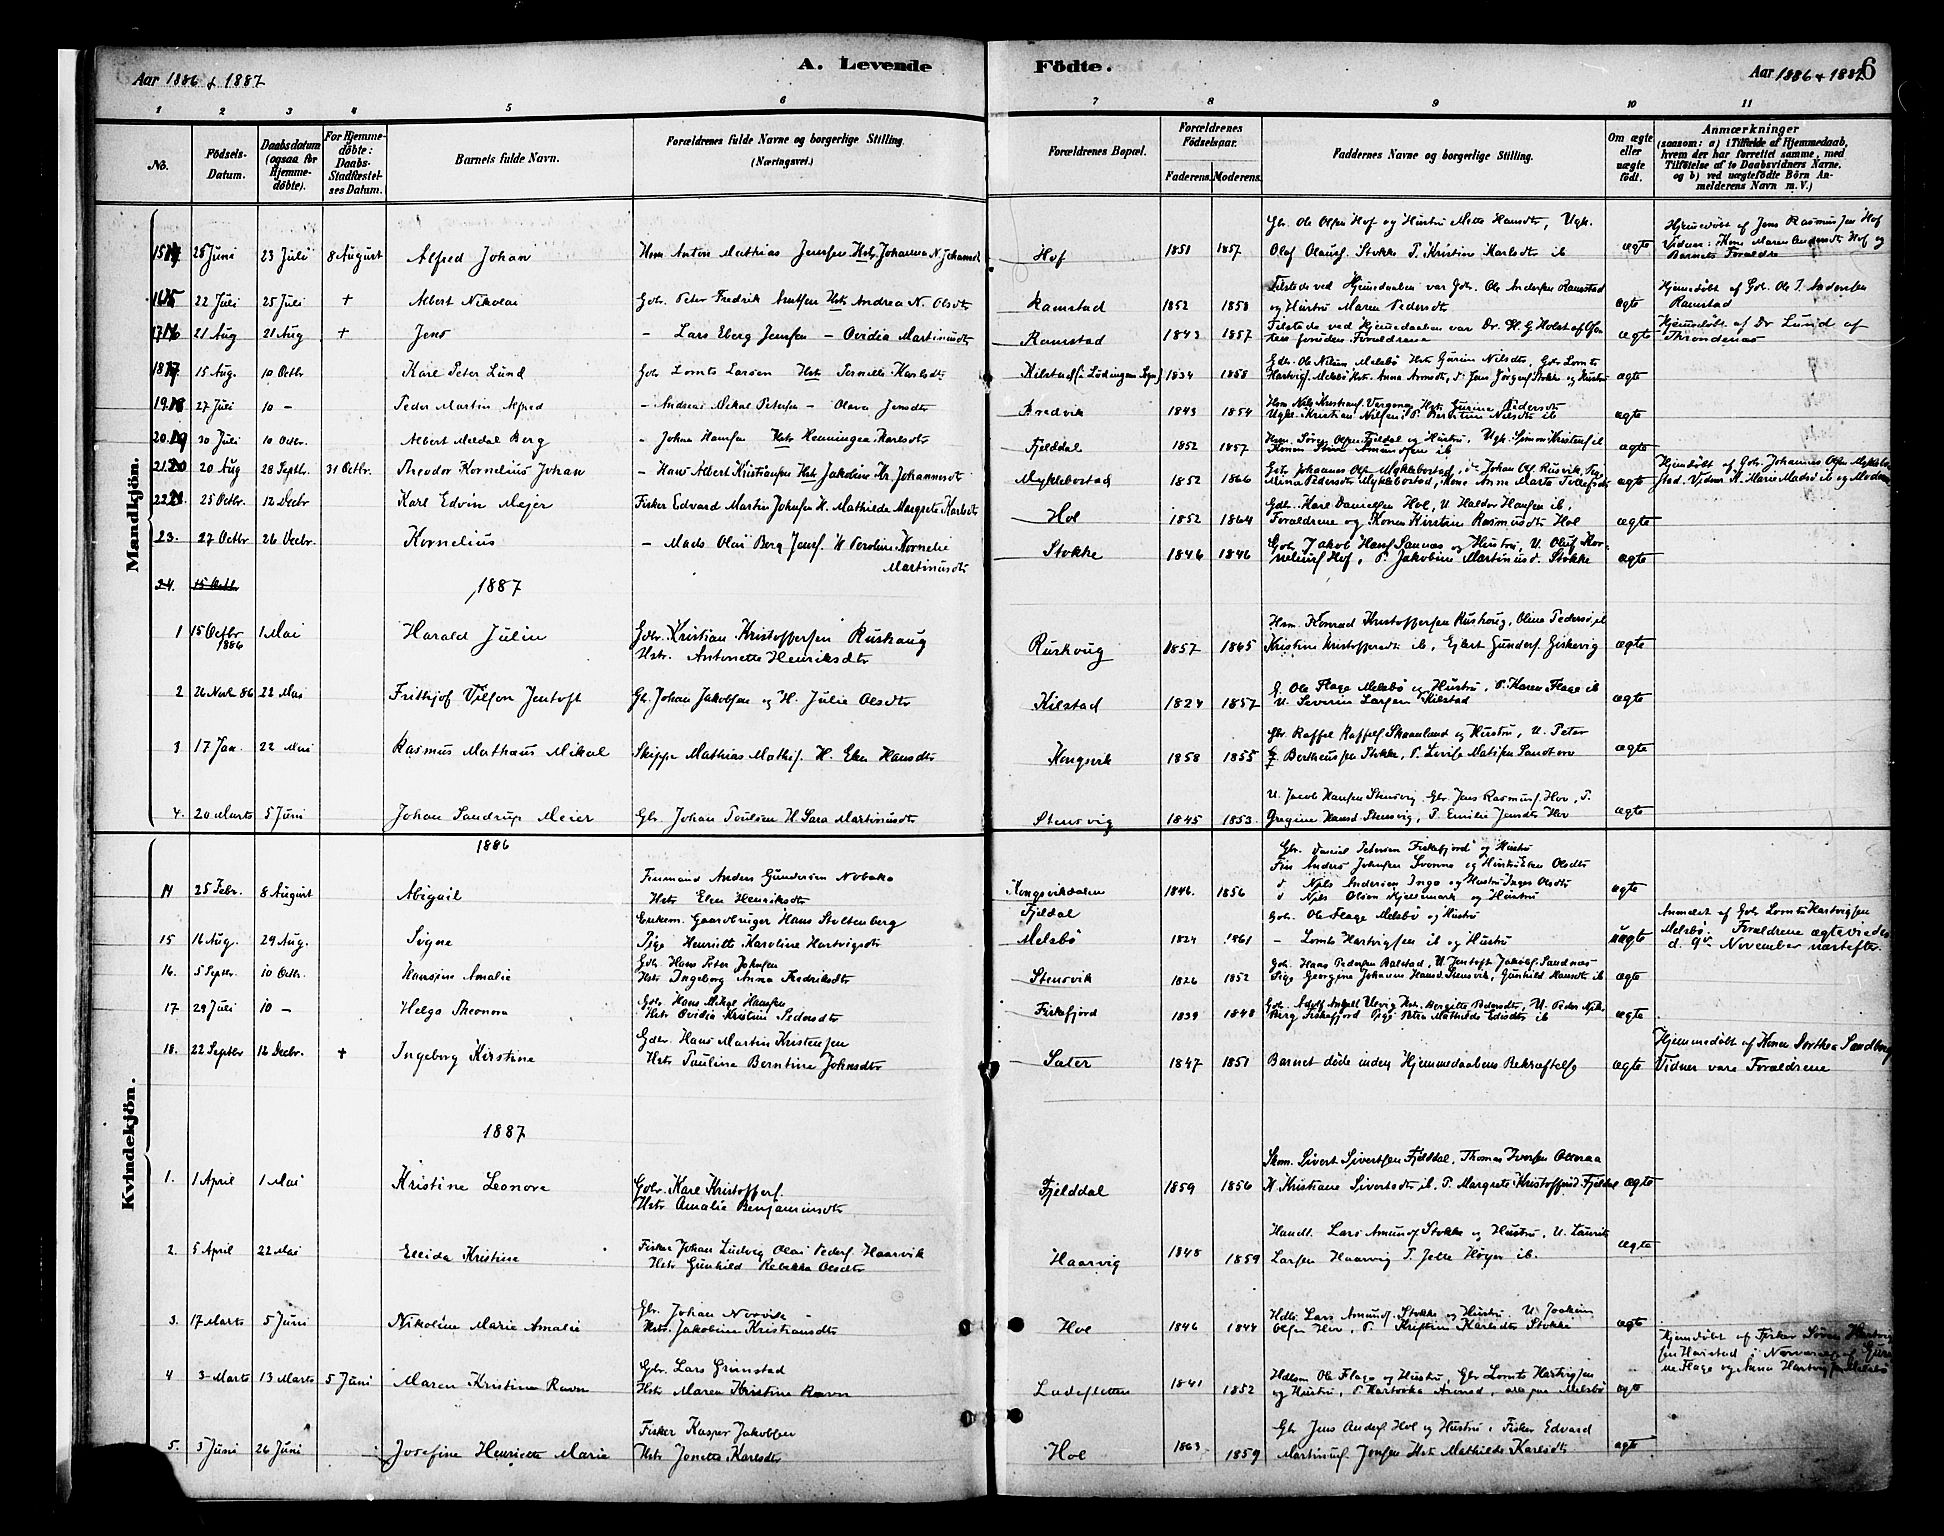 Aar 1886 & 1887
A. Levende
Födte.
Aar 1886 & 1887
6
1 2 3 4 5 6 7 8 9 10 11
No.
Födsels-Datum.
Daabsdatum (ogsaa for Hjemme-döbte).
For Hjemme-döbte: Daabs-Stadfæstel-ses Datum.
Barnets fulde Navn.
Forældrenes fulde Navne og borgerlige Stilling.
(Næringsvei.)
Forældrenes Bopæl.
Forældrenes Födselsaar.
Faderens. Moderens.
Faddernes Navne og borgerlige Stilling.
Om ægte eller uægte födt.
Anmærkninger
(saasom: a) i Tilfælde af Hjemmedaab,
hvem der har forrettet samme, med
Tilföielse af to Daabsvidners Navne,
og b) ved uægtefödte Börn An-
melderens Navn m. V.)
Mandkjön.
Gbr. Ole Olsen Hof og Hustru Mette Hansdtr, Ugk.
Hjemmedöbt af Jens Rasmussen Hof
25 Juni 23 Juli 8 August Alfred Johan Hsm Anton Mathias Jenssen Hstr Johanna N. Johannsd Hof 1851 1857 Olaf Olausf. Stokke P. Kristine Karlsdtr ib ægte Vidner: Kone Maren Andersdtr Hof og
Barnets Forældre
Tilstede ved Hjemmedaaben var Gbr. Ole Andersen Ramstad
22 Juli 25 Juli + Albert Nikolai Gbr. Peter Fredrik Arntsen Hstr Andrea N. Olsdtr Ramstad 1852 1858 og Hustru Maren Pedersdtr ægte Hjemmedöbt af Gbr. Ole T. Andersen
Ramstad
21 Aug 21 Aug + Jens - Lars Eberg Jenssen - Ovidia Martinusdtr Ramstad 1843 1857 Tilstede ved Hjemmedaaben var Dr. H. G. Holst af
foruden Forældrene ægte Hjemmedöbt af Dr Lund af
Throndenæs
15 Aug. 10 Octbr Karl Peter Lund Gbr Lomts Larsen Hstr Pernille Karlsdtr Kilstad (i Lödingen Sogn) 1834 1858 Gbr. Ole Nilsen Melsbö Hstr Gurine Nilsdtr, Gbr Lomts
Hartvigs. Melsbö Hstr. Anna Arnsdtr, P. Jens Jörgens Stokke og Hustru ægte
27 Juli 10 - Peder Martin Alfred - Andreas Mikal Petersen - Olava Jensdtr Bredvik 1843 1854 Hsm Nils Kristians. Hstr Gurine Pedersdtr
Ugk. Kristian Nilsen, P. Berntine Nilsdtr ib ægte
20 Juli 10 Octbr. Albert Meldal Berg - Johan Hansen Hstr Henningea Karlsdtr Fjelddal 1852 1857 Hsm. Sören Olsen Fjeldal og Hustru, Ugk. Simon Kristens ib
ægte
20 Aug 28 Septbr. 31 Octbr. Theodor Kornelius Johan - Hans Albert Kristiansen Hstr Jakobine Kr. Johannesdtr Myklebostad 1852 1866 Gbr Johannes Ols Myklebostad, Johan Ols Rusvik, Pige
Mina Pedersdtr Myklebostad, Kone Anne Marta Tollefsdtr ægte Hjemdöbt af Gbr. Johannes Olsen Myklebo-
stad. Vidner K. Marie Madsd ib og Moderen
25 Octbr. 12 Decbr Karl Edvin Mejer Fisker Edvard Martin Johnsen H. Mathilde Margrete Karlsdtr Hol 1852 1864 Gbr. Karl Danielsen Hol, U. Haldor Hansen ib.
Forældrene og Konen Kirstine Rasmusdtr Hol ægte
23. 27 Octbr 26 Decbr. Kornelius - Mads Olai Berg Jens. H Peroline Kornelie
Martinusdtr Stokke 1846 1846 Gbr Jakob Hans Sannæs og Hustru, U. Oluf Kor-
neliusf Hof, P. Jakobine Martinusd. Stokke ægte
24. 15 Octb.
1887
1 15 Octbr 1886 1 Mai Harald Julin Gdbr. Kristian Kristoffersen Ruskaug
Hstr. Antonette Henriksdtr Ruskoug 1857 1865 Hsm. Konrad Kristoffersen Ruskoug, Olina Pedersd, ib
Kristine Kristoffersdtr ib, Ejlert Gunders. Geskevig ægte
2 26 Novb 86 22 Mai Frithjof Vilson Jentoft Gbr. Johan Jakobsen og H. Julie Olsdtr Kilstad 1824 1857 G. Ole Flage Melsbö og Hustru, P. Karen Flage ib
U. Severin Larsen Kilstad ægte
3 17 Jan. 22 Mai Rasmus Mathæus Mikal Skipper Mathias Mathis. H. Elen Hansdtr Kongsvik 1858 1855 Gbr Raffel Raffels Skaanland og Hustru, U. Peter
Bertheussen Stokke, P. Lovise Matisen Sandtorv ægte
4. 20 Marts 5 Juni Johan Sandrup Meier Gbr. Johan Poulsen H Sara Martinusdtr Stensvig 1845 1853. U. Jacob Hansen Stensvig, Gbr Jens Rasmus. Hov, P.
Gregine Hansd Stensvig, P. Emilie Jensdtr Hov ægte
Kvindekjön.
1886
14 25 Febr. 8 August Abigail Anders Gundersen
Hstr Elen Henriksdtr Kongsvikdalen 1846. 1856 Gbr. Daniel Petersen Fiskefjord og Hustru
Anders Johnsen og Hustru Elen Olsdtr
Njels Andersen Inga og Hustru Inger Olsdtr
Njels Olsen Kjeldemark og Hustru ægte
15 16 Aug. 29 Aug. Signe Enkem. Gaardbruger Hans Stoltenberg
Pige Henriette Karoline Hartvigsdtr Fjeldal
Melsbö 1824 1861 Gbr. Ole Flage Melsbö og Hustru
- Lomts Hartvigsen ib og Hustru uægte Anmeldt af Gbr Lomts Hartvigsen
Melsbö. Forældrene ægteviedes
d. 9de November næstefter.
16. 5 Septbr. 10 Octbr. Hansine Amalie Gbr Hans Peter Johnsen
Hstr Ingeborg Anna Fredriksdtr Stensvik 1826 1852 Gbr. Hans Pedersen Balstad, U. Jentoft Jakobs. Sandnæs
Pige Georgine Johanna Hansd. Stensvik, Gunhild Hansdtr ib ægte
17 29 Juli 10 - Helga Theonora Gbr. Hans Mikal Hansen
Hstr Ovidia Kristine Pedersdtr Fiskefjord 1839 1848 Gbr. Adolf Antzell Ulvig Hstr. Bergitte Pedersdtr, U. Peder
Berg Fiskefjord Pige Petra Mathilde Edisdtr ib ægte
18. 22 Septbr 12 Decbr. + Ingeborg Kirstine Gdbr. Hans Martin Kristensen
Hstr Pauline Berntine Johnsdtr Sater 1847 1851 Barnet döde inden Hjemmedaabens Bekræftelse ægte Hjemmedöbt af Konen Dorthea Sandberg
Vidner vare Forældrene
1887
1. 1 April 1 Mai Kristine Leonore Gdbr. Karl Kristoffers.
Hstr Amalie Benjaminsdtr Fjelddal 1859 1856 Skom. Sivert Sivertsen Fjelddal, Thomas Iversen Otteraa
K. Kristiane Sivertsdtr ib. P. Margrete Kristoffersd. Fjeldal ægte
2. 5 April 22 Mai Elida Kristine Fisker Johan Ludvig Olai Peders. Haarvik
Hstr Gunhild Rebekka Olsdtr Haarvig 1848 1859 Handl. Lars Amunds Stokke og Hustru, U. Laurits
Larsen Haarvig P. Jette Höyer ib. ægte
3. 17 Marts 5 Juni Nikoline Marie Amalie Gbr. Johan Norvik
Hstr. Jakobine Kristiansdtr Hol 1846 1844 Hdlr. Lars Amunds. Stokke og Hustru, U. Joakim
Olsen Hov, P. Kristine Karlsdtr Stokke ægte
4 3 Marts 13 Marts 5 Juni Maren Kristine Ravn Gbr. Lars Grimstad
Hstr Maren Kristine Ravn Ladesletten 1841 1852 Hdlsm Ole Flage og Hustru, Gbr Lomts Hartvigsen
og Hustru, P. Hartvika Arnesd, Melsbö ægte Hjemdöbt af Fisker Sören Hartvig
sen Harstad i Nærværelse af
Flage og Anna Hartvigsen Melsbö
5. 3 Juni 26 Juni Josefine Henriette Marie Fisker Kasper Jakobsen
Hstr Jonette Karlsdtr Hol 1863 1859 Gbr Jens Anders Hol og Hustru, Fisker Edvard
Martinus. Jonsen Hstr Mathilde Karlsdtr ægte